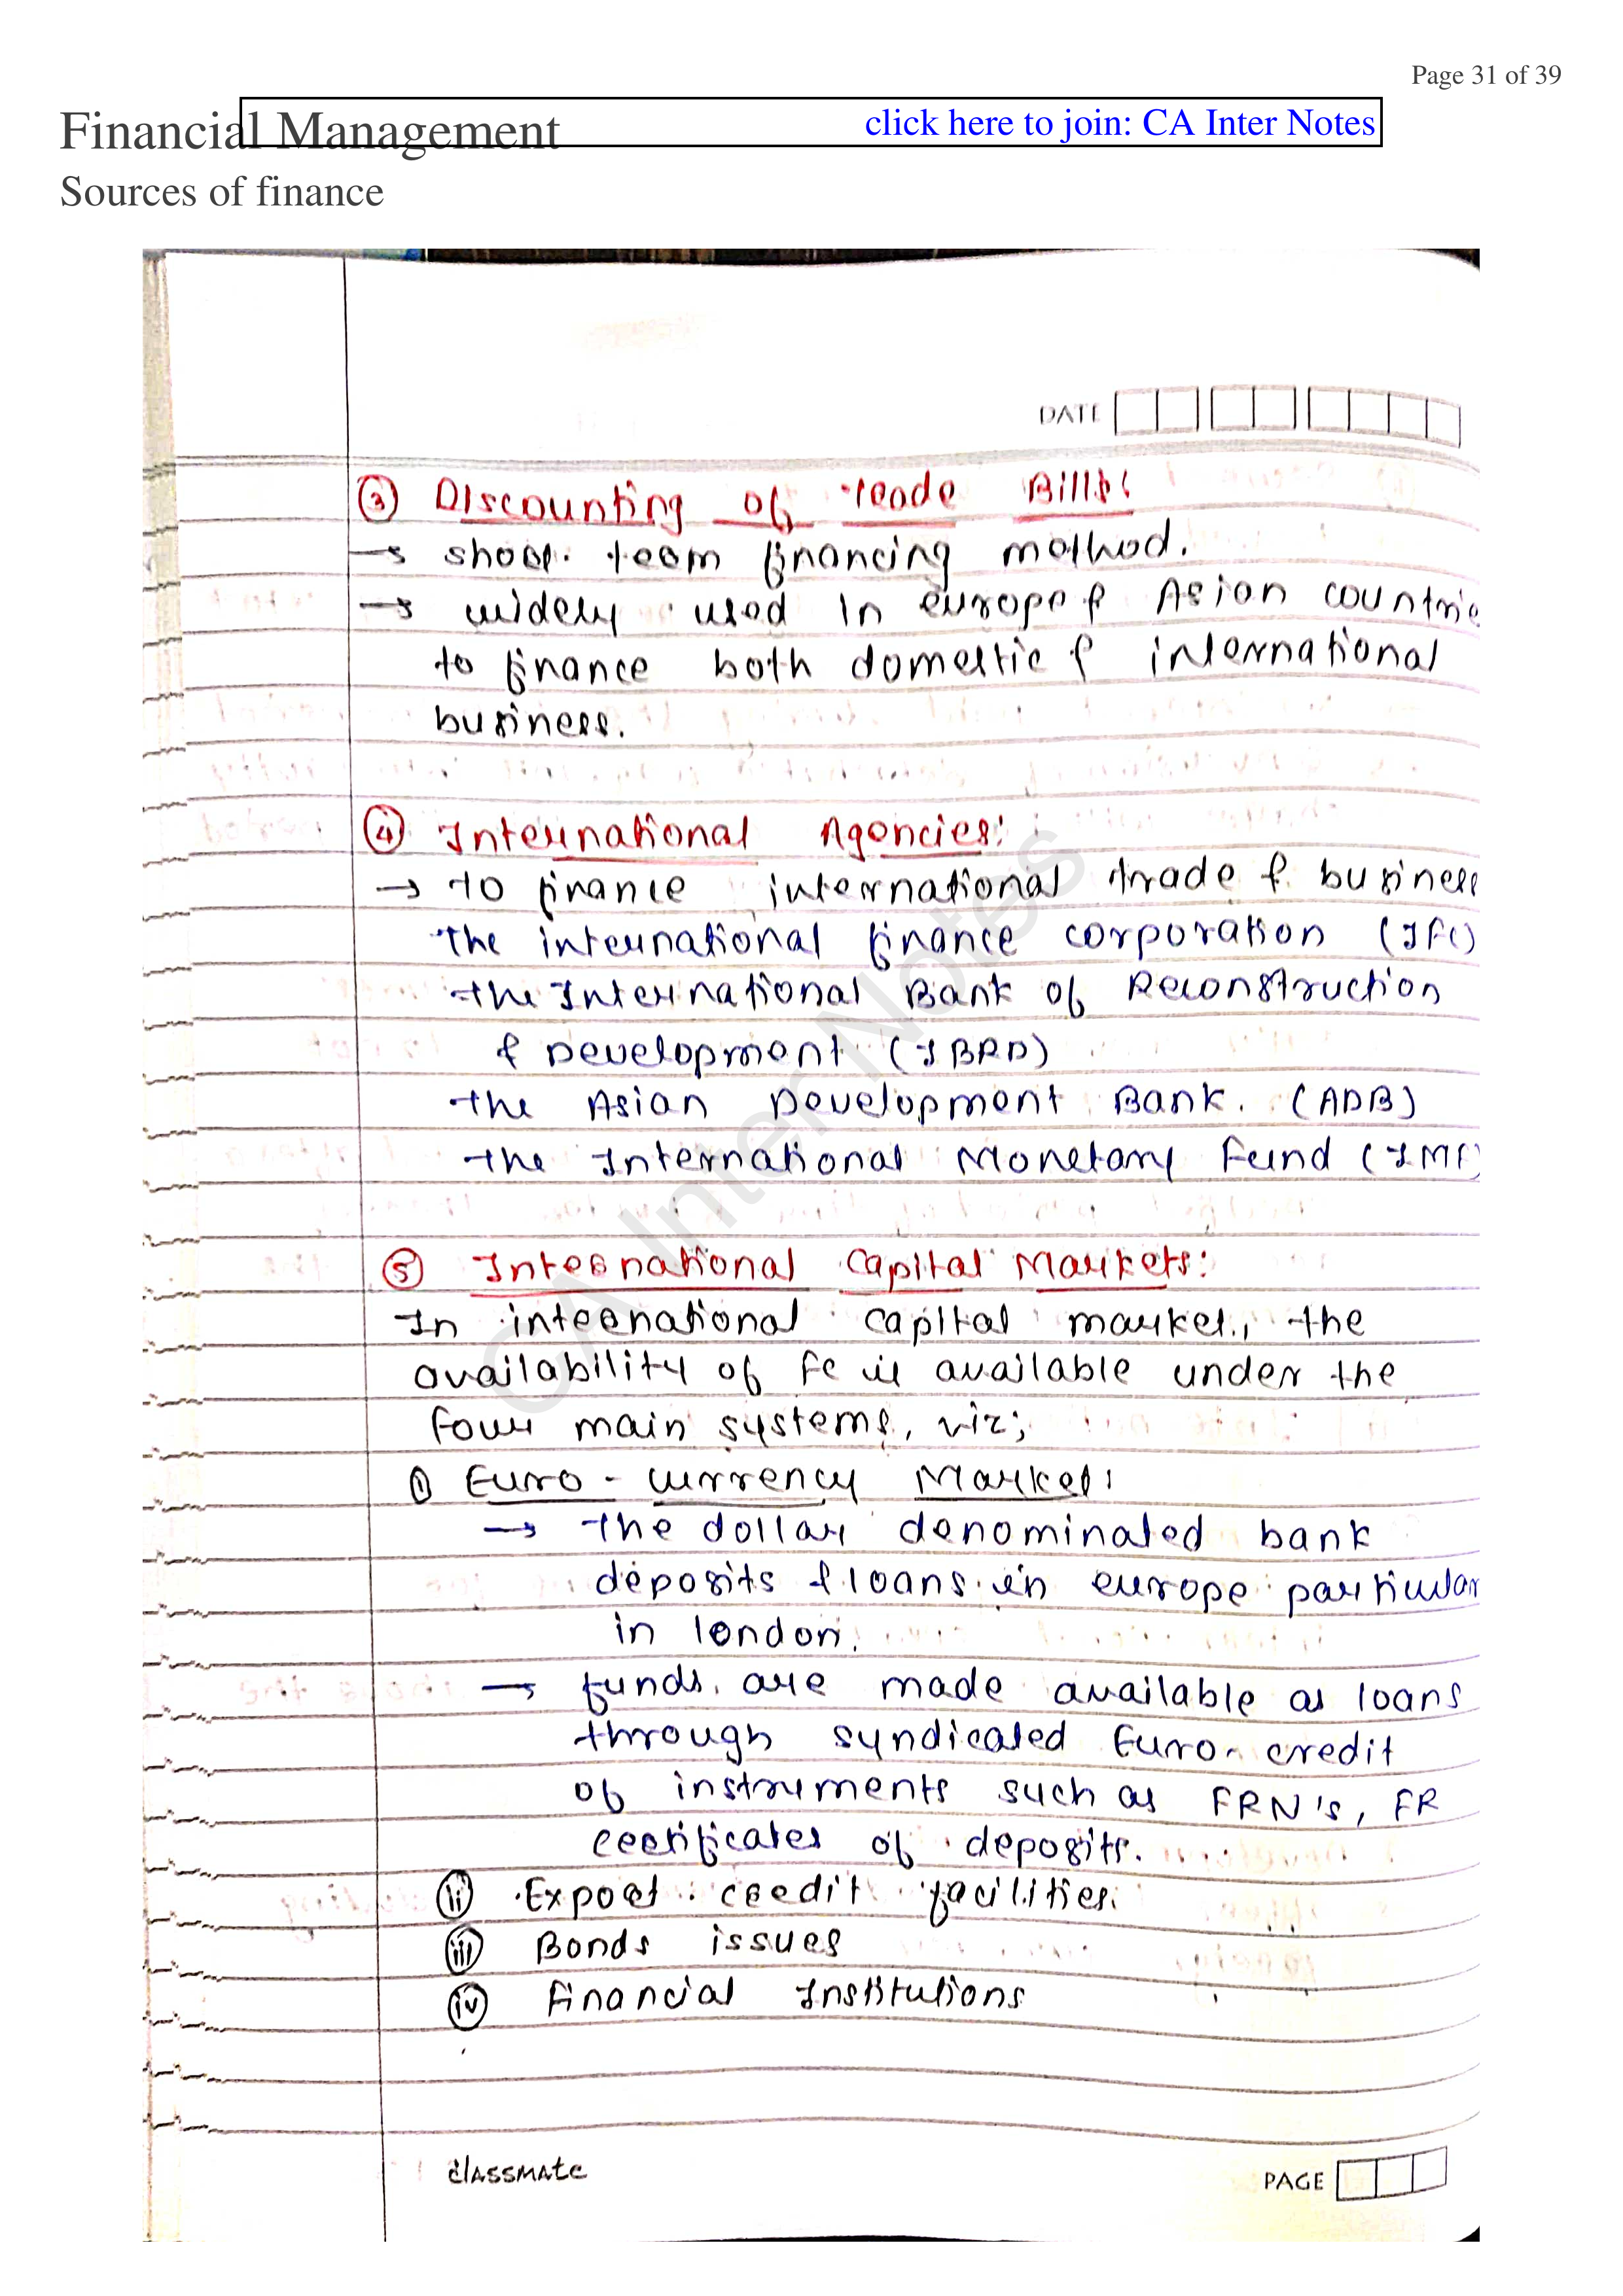 Page 31 of 39
Financial Management
click here to join: CA Inter Notes
Sources of finance
DATE
③ Discounting of Trade Bills:
→ short term financing method.
→ widely used in europe & Asian countrie
to finance both domestic & international
business.
④ International Agencies:
→ To finance international trade & business
the international finance corporation (IFC)
the International Bank of Reconstruction
& Development (IBRD)
the Asian Development Bank. (ADB)
the International Monetary Fund (IMF)
⑤ International Capital Markets:
In international capital market, the
availability of FC is available under the
four main systems, viz;
① Euro - currency Market:
→ the dollar denominated bank
deposits & loans in europe particular
in london.
→ funds are made available as loans
through syndicated Euro-credit
of instruments such as FRN's, FR
certificates of deposits.
ⅱ Export credit facilities.
ⅲ Bonds issues
ⅳ Financial Institutions
classmate
PAGE
CA Inter Notes